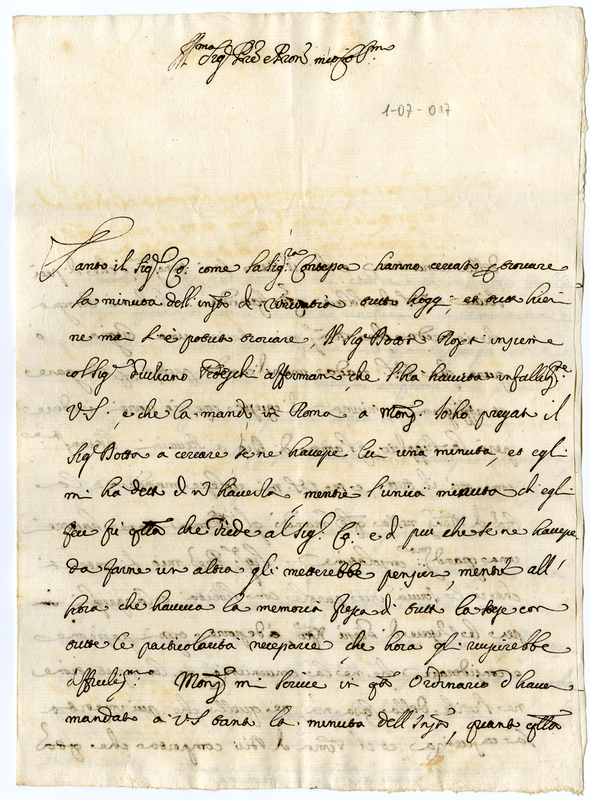 Ill.mo Sig.r Pre e Pron mio Col.mo
1-07-017
Tanto il Sig.r Co: come la Sig.ra Contessa hanno cercato di trovare
la minuta dell' de rinuntia tutto hogg, et tutt hier
ne mai s'è potuta trovare, Il Sig.r Dottor insieme
col Sig.r Giuliano affermano che l'ha havuta infallib.te
V.S., e che la mandò in Roma a Mons. Io hò pregato il
Sig.r Dottor a cercare se ne havesse lui una minuta, et egli
mi ha detto di nō haverla, mentre l'unica minuta ch'egli
fece fù qlla che diede al Sig.r Co: e di più che se ne havesse
da farne un altra gli metterebbe pensier, mentre all'
hora che haveva la memoria fresca di tutt la
tutte le particolarità necessarie, che hora gli riuscirebbe
difficiliss.mo Mons.r mi scrive in qto Ordinario d'haver
mandato a V.S. tanto la minuta dell'Instr, quanto qlla